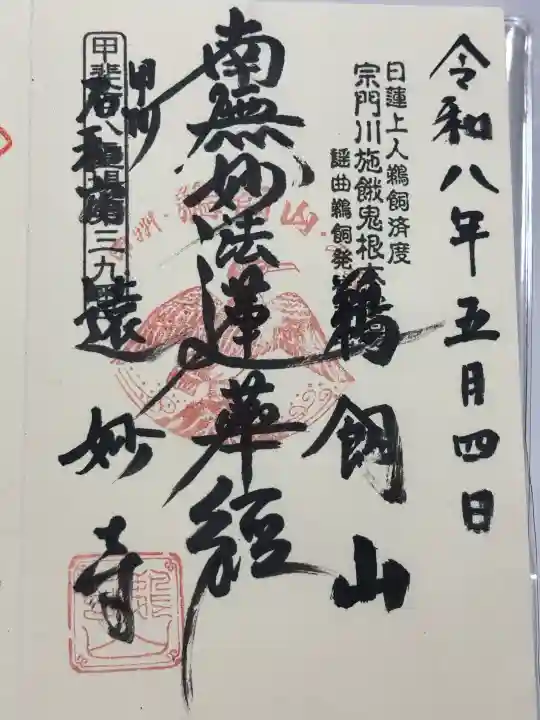 令和八年五月四日
日蓮上人鵜飼済度
宗門川施餓鬼根
謡曲鵜飼発
鵜飼山
南無妙法蓮華経
甲州
石和
遠妙寺
甲斐
三九